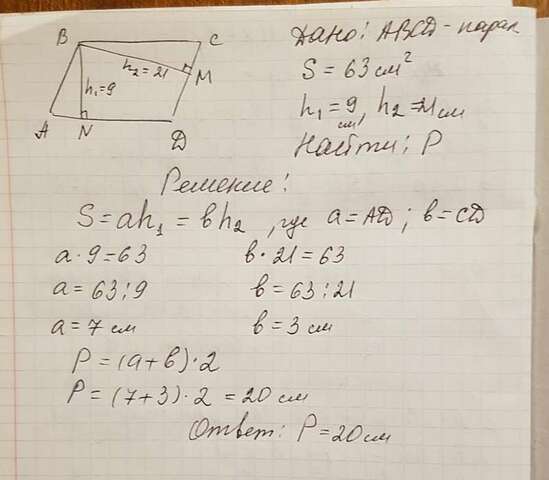 B C
h₂=21
h₁=9 M
A N D
Дано: ABCD - парал
S = 63 см²
h₁ = 9 см, h₂ = 21 см
Найти: P
Решение:
S = ah₁ = bh₂, где a = AD; b = CD
a · 9 = 63 b · 21 = 63
a = 63 : 9 b = 63 : 21
a = 7 см b = 3 см
P = (a + b) · 2
P = (7 + 3) · 2 = 20 см
Ответ: P = 20 см